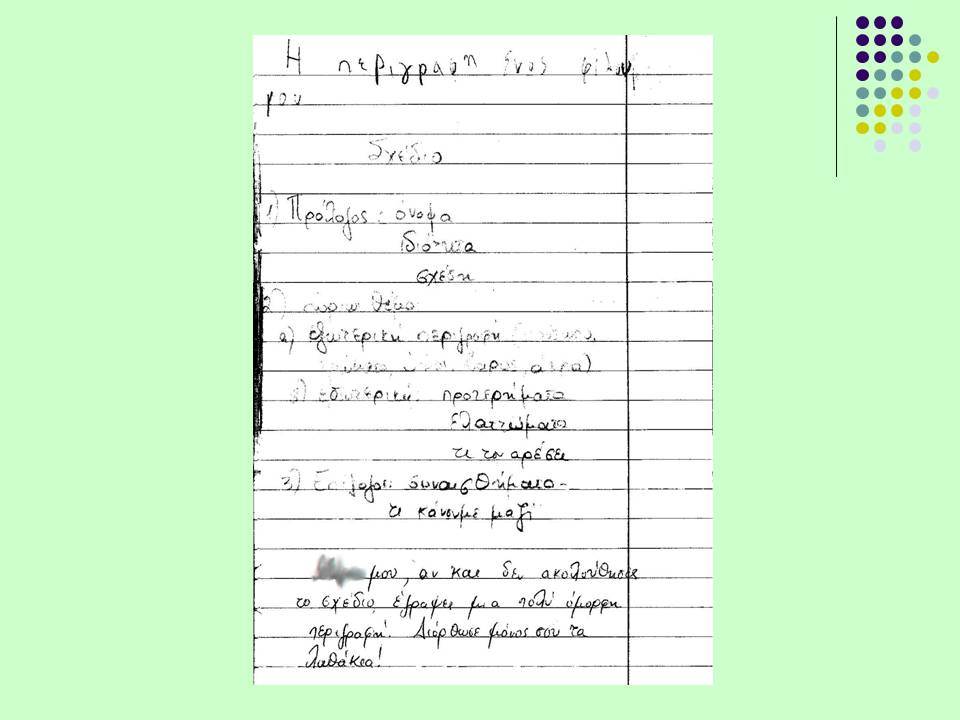 Η περιγραφη ενος φίλου
μου
Σχέδιο
1) Πρόλογος: όνομα
ιδιότητα
σχέση
2) κύριο θέμα
α) εξωτερική περιγραφή
βάρος,
β) εσωτερική: προτερήματα
ελαττώματα
τι του αρέσει
3) Επίλογος: συναισθήματα-
τι κάνουμε μαζί
μου, αν και δεν ακολούθησες
το σχέδιο, έγραψες μια πολύ όμορφη
περιγραφή. Διόρθωσε μόνος σου τα
λαθάκια!